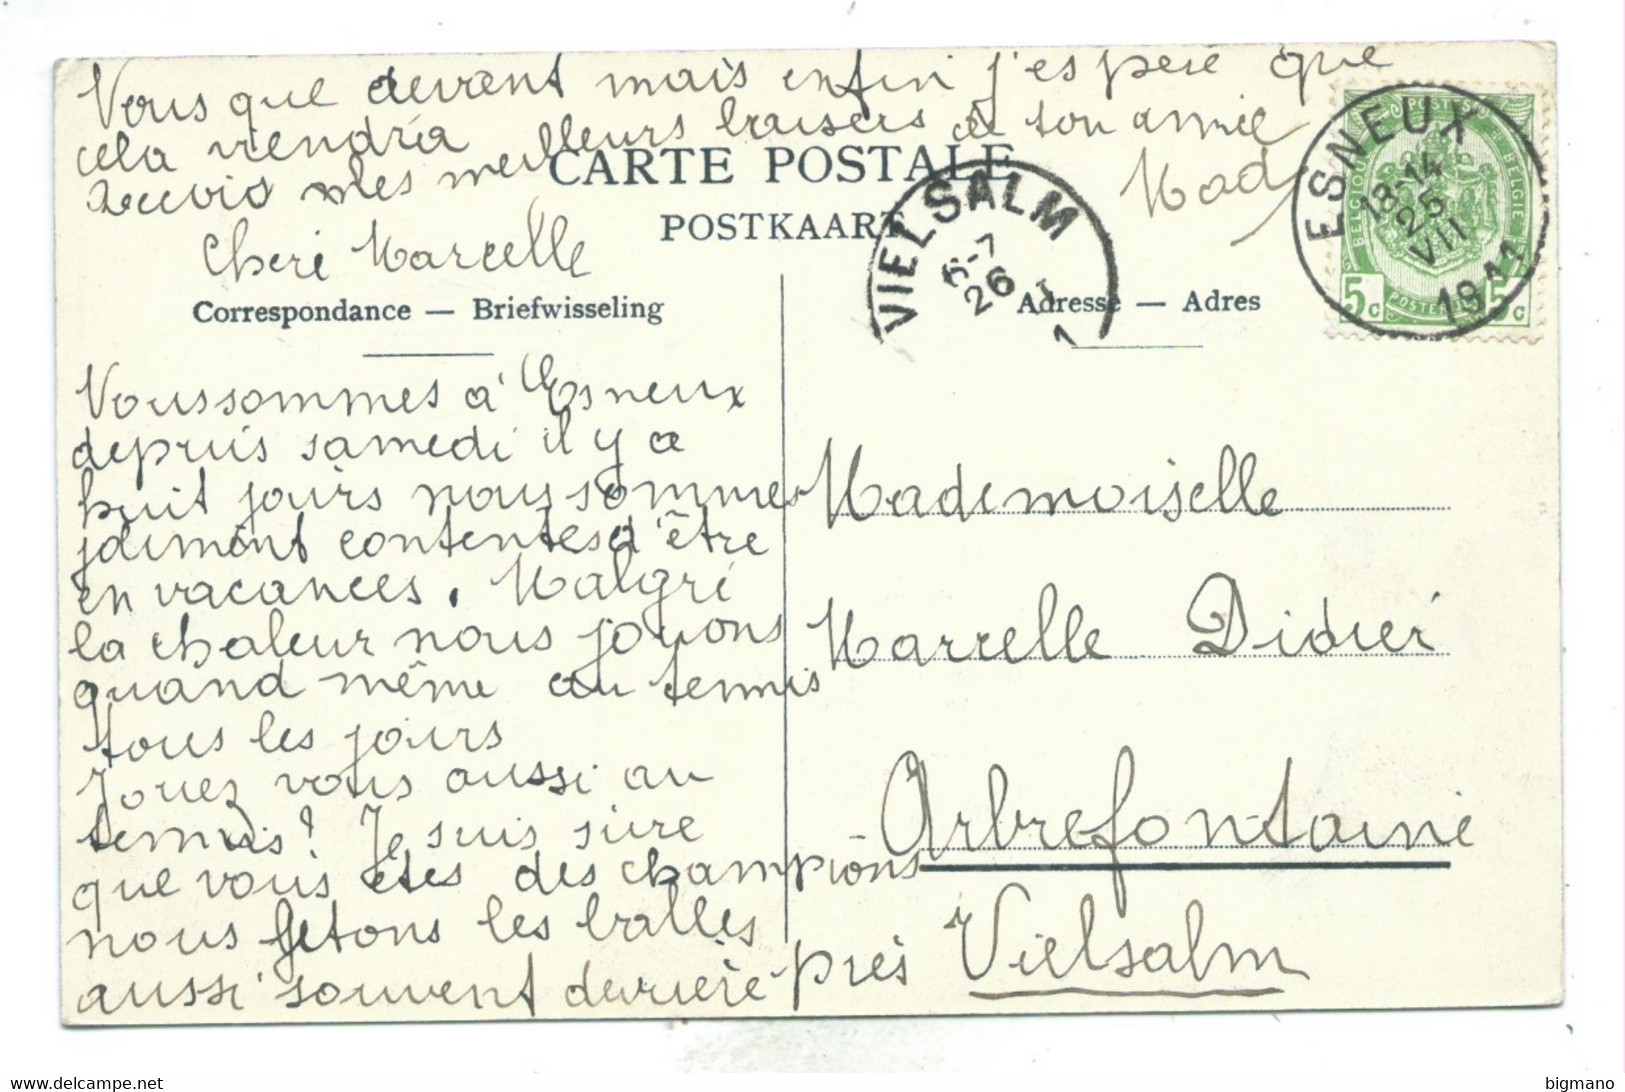 Vous que devent mais enfin j'espere que
cela viendra
recevois mes meilleurs baisers de ton amie
Mad
CARTE POSTALE
POSTKAART
Cheré Marcelle
Correspondance — Briefwisseling
Adresse — Adres
ESNEUX
13-14
25
VII
1911
VIELSALM
6-7
26
POSTES
BELGIQUE
BELGIE
POSTERIJEN
5c 5c
Voussommes à Esneux
depuis samedi il y a
huit jours nous sommes
joliment contentes d'être
en vacances. Malgré
la chaleur nous jouons
quand même au tennis
tous les jours
Jouez vous aussi au
tennis? Je suis sure
que vous êtes des champions
nous jetons les balles
aussi souvent derrière
Mademoiselle
Marcelle Didier
- Arbrefontaine
près Vielsalm
delcampe.net
bigmano